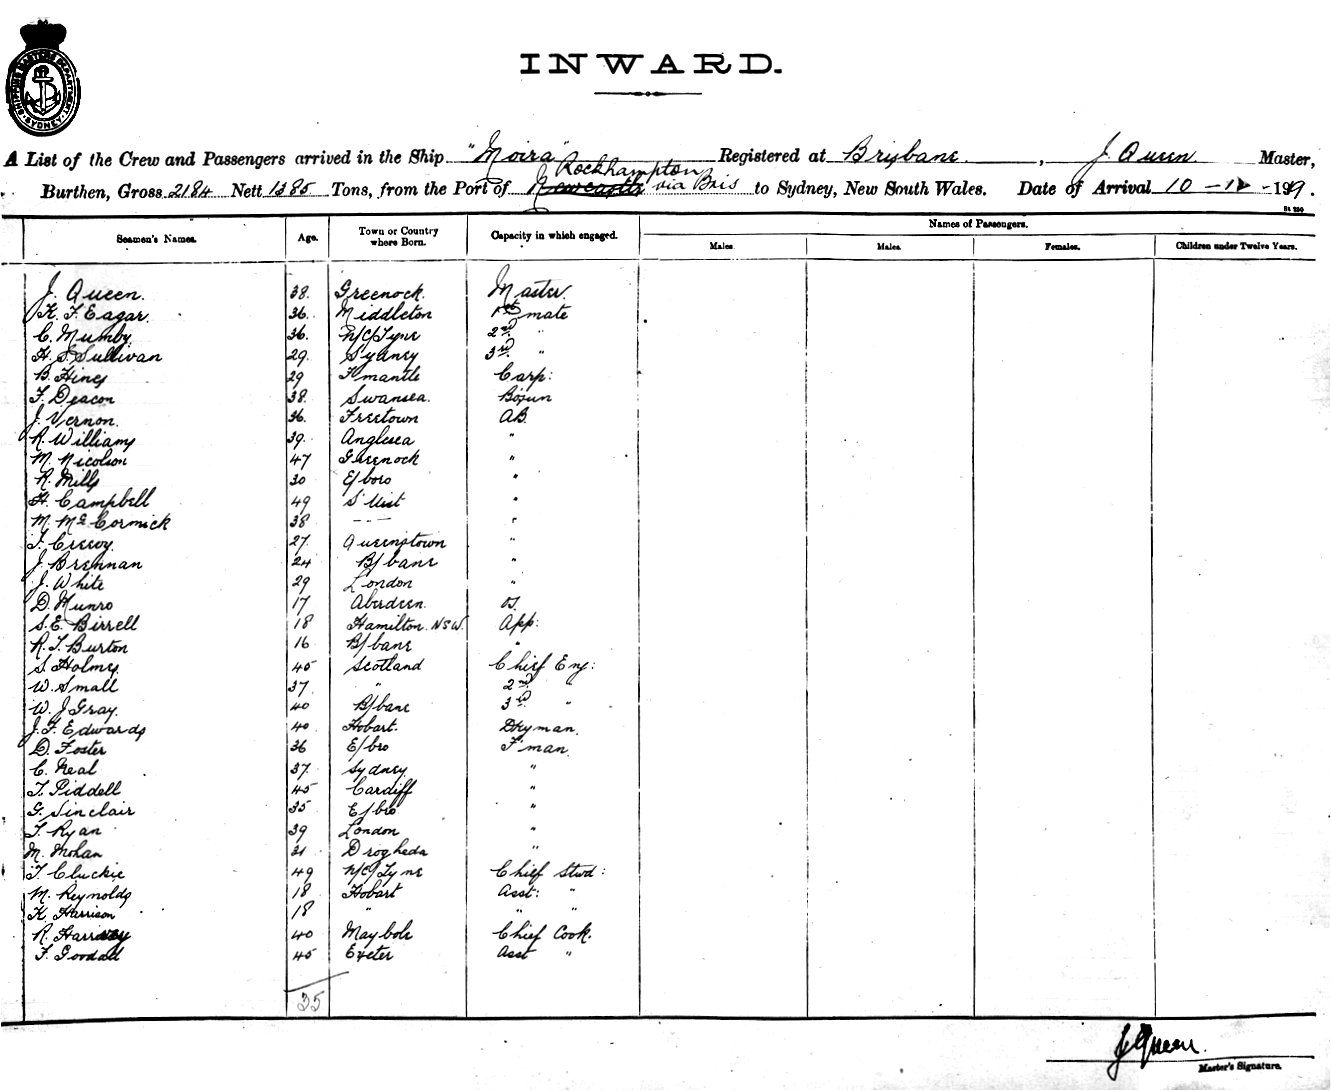 SHIPPING MASTER'S DEPARTMENT
SYDNEY
INWARD.
A List of the Crew and Passengers arrived in the Ship "Moira" Registered at Brisbane, J. Queen Master,
Rockhampton
Burthen, Gross 2184 Nett 1385 Tons, from the Port of Newcastle via Bris to Sydney, New South Wales. Date of Arrival 10-12-1919.
Seamen's Names. Age. Town or Country where Born. Capacity in which engaged. Names of Passengers.
Males. Males. Females. Children under Twelve Years.
J. Queen. 38. Greenock. Master.
K. F. Eagar. 36. Middleton 1st mate
C. Mumby. 36. N/C/Tyne 2nd "
H. S. Sullivan 29. Sydney 3rd "
B. Hines 29 F'mantle Carp:
F. Deacon 38. Swansea. Bosun
J. Vernon. 36. Freetown AB.
R. Williams 39. Anglesea "
M. Nicolson 47 Greenock "
R. Mills 30 E/boro "
H. Campbell 49 S'Uist "
M. McCormick 38 - - - "
T. Creevy. 27. Queenstown "
J. Brennan 24 B/bane "
J. White 29 London "
D. Munro 17 Aberdeen. OS.
S. E. Birrell 18 Hamilton. NSW. App:
R. T. Burton 16 B/bane "
S. Holmes 45 Scotland Chief Eng:
W. Small 37 " 2nd "
W. J Gray. 40 B/bane 3rd "
J. F. Edwards 40 Hobart. Dkyman.
D. Foster 36 E/bro F'man.
C. Neal 37. Sydney "
T. Piddell 45 Cardiff "
G. Sinclair 35 E/bro "
T. Ryan 39 London "
M. Mohan 31 Drogheda "
T. Cluckie 49 N/C/Tyne Chief Stwd:
M. Reynolds 18 Hobart Asst: "
K. Harrison 18 " " "
R. 40 Maybole Chief Cook.
F. Goodall 45 Exeter Asst "
35
J Queen.
Master's Signature.